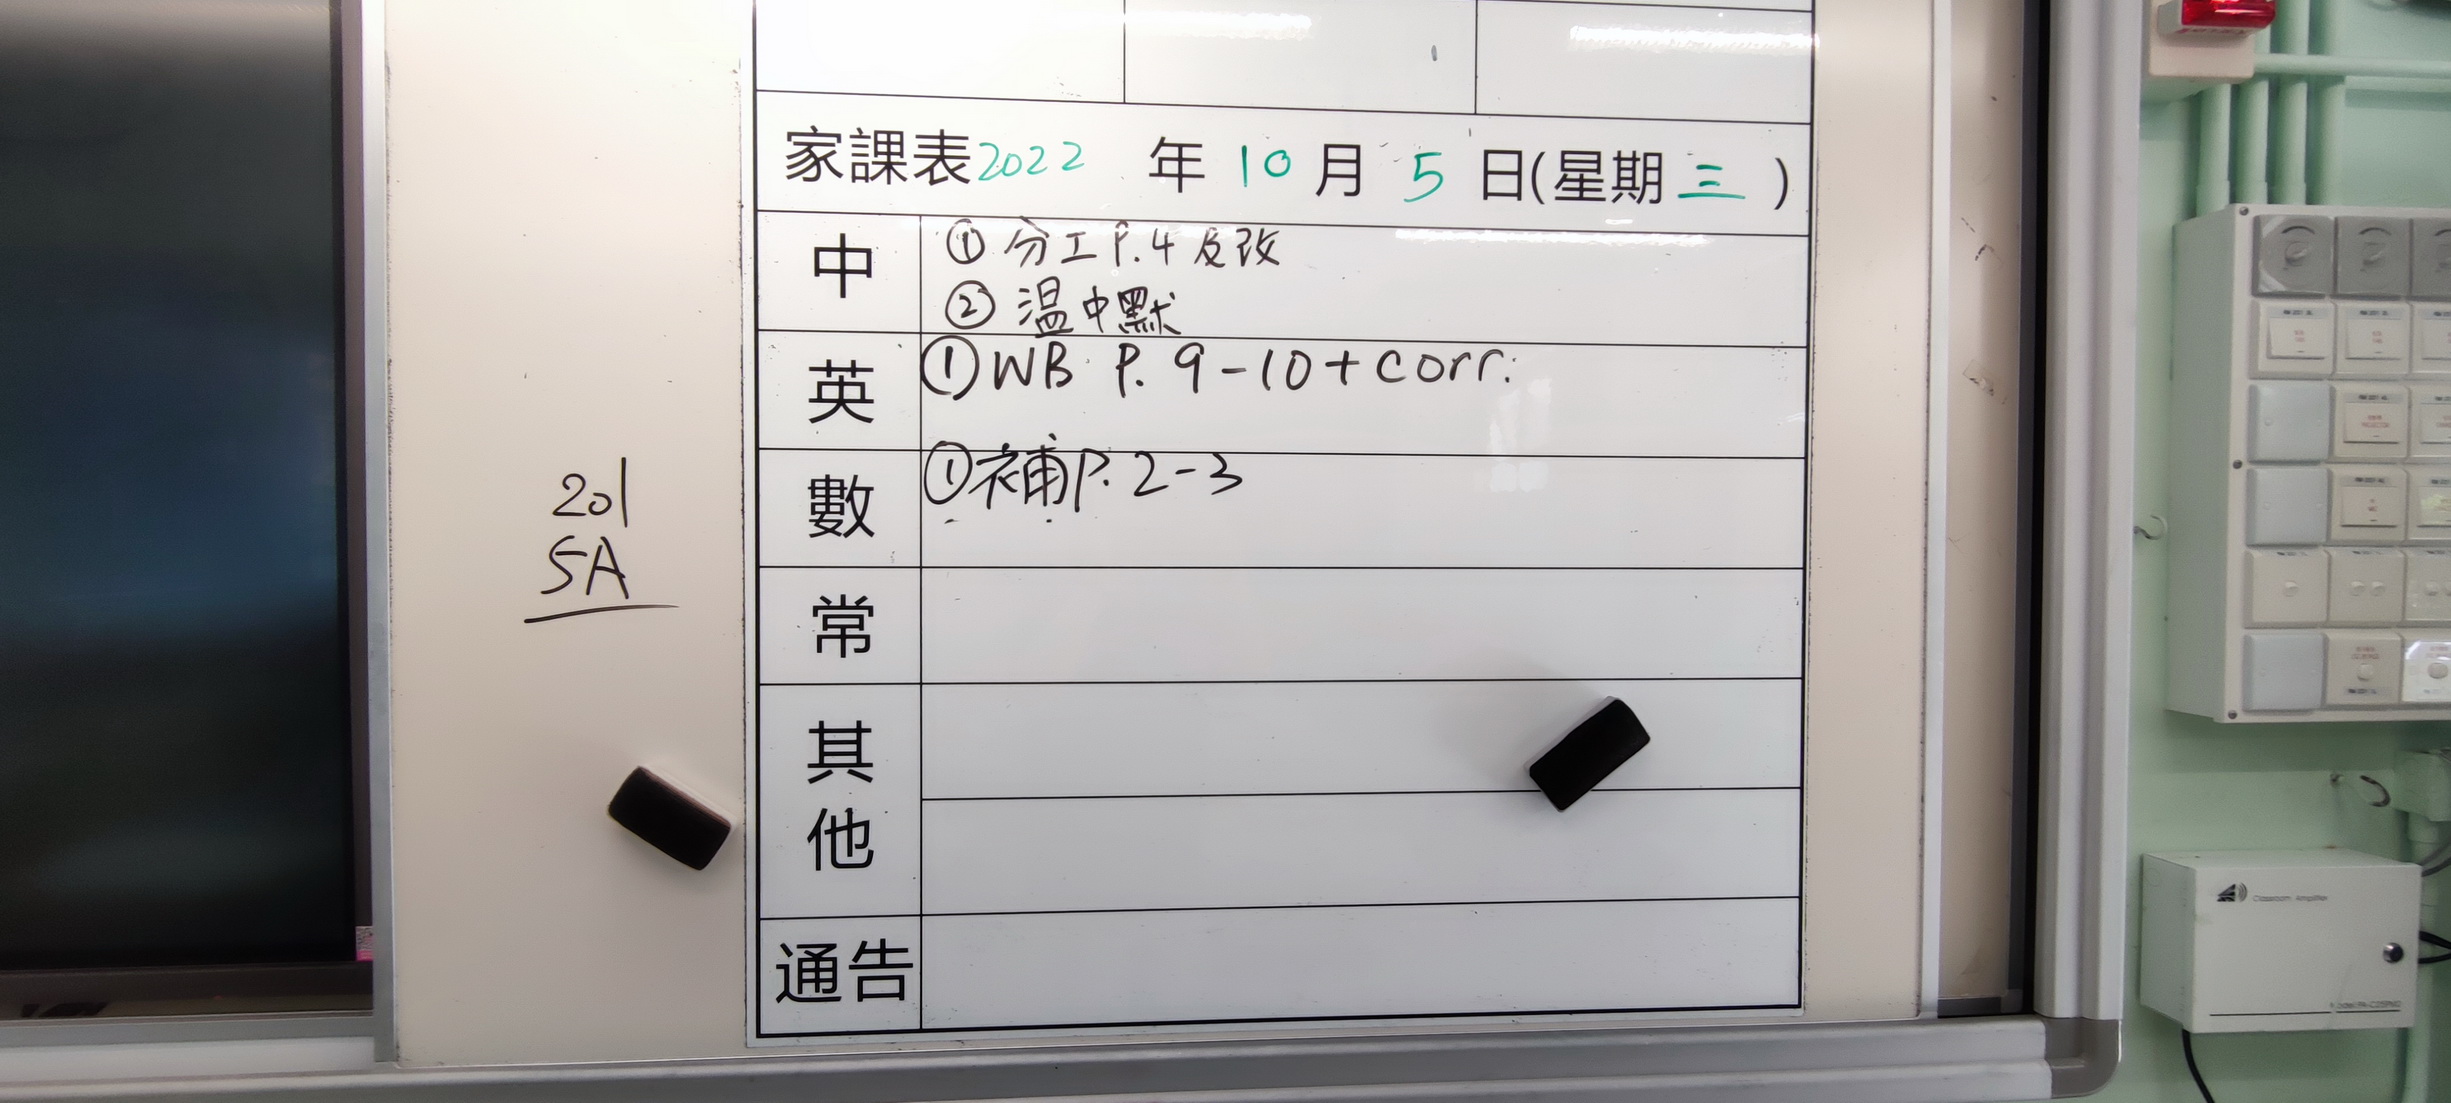 家課表2022 年 10 月 5 日(星期三)
中
① 分工P.4 及改
② 温中默
英
①WB P. 9-10+corr.
數
①補P. 2-3
常
其他
通告
201
5A
Classroom Amplifier